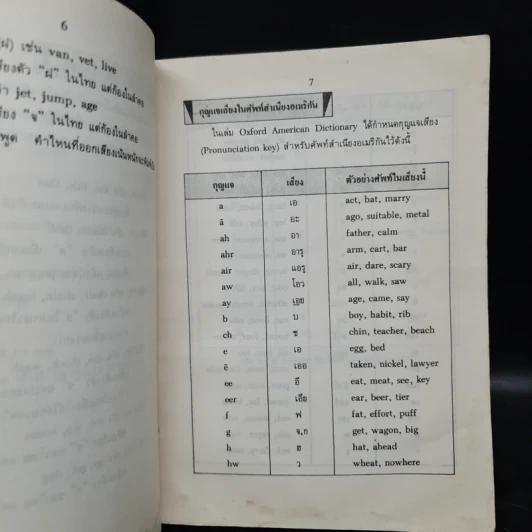 6
(ฝ) เช่น van, vet, live
ตัว "ฝ" ในไทย แต่ก้องในลำคอ
jet, jump, age
"จ" ในไทย แต่ก้องในลำคอ
พูด คำไหนที่ออกเสียงเน้นหนัก
7
กุญแจเสียงในศัพท์สำเนียงอเมริกัน
ในเล่ม Oxford American Dictionary ได้กำหนดกุญแจเสียง
(Pronunciation key) สำหรับศัพท์สำเนียงอเมริกันไว้ดังนี้
กุญแจ เสียง ตัวอย่างศัพท์ในเสียงนี้
a เอ act, bat, marry
ă อะ ago, suitable, metal
ah อา father, calm
ahr อาร์ arm, cart, bar
air แอร์ air, dare, scary
aw โอว all, walk, saw
ay เอย age, came, say
b บ boy, habit, rib
ch ช chin, teacher, beach
e เอ egg, bed
ĕ เออ taken, nickel, lawyer
ee อี eat, meat, see, key
eer เอีย ear, beer, tier
f ฟ fat, effort, puff
g จ,ก get, wagon, big
h ฮ hat, ahead
hw ว wheat, nowhere